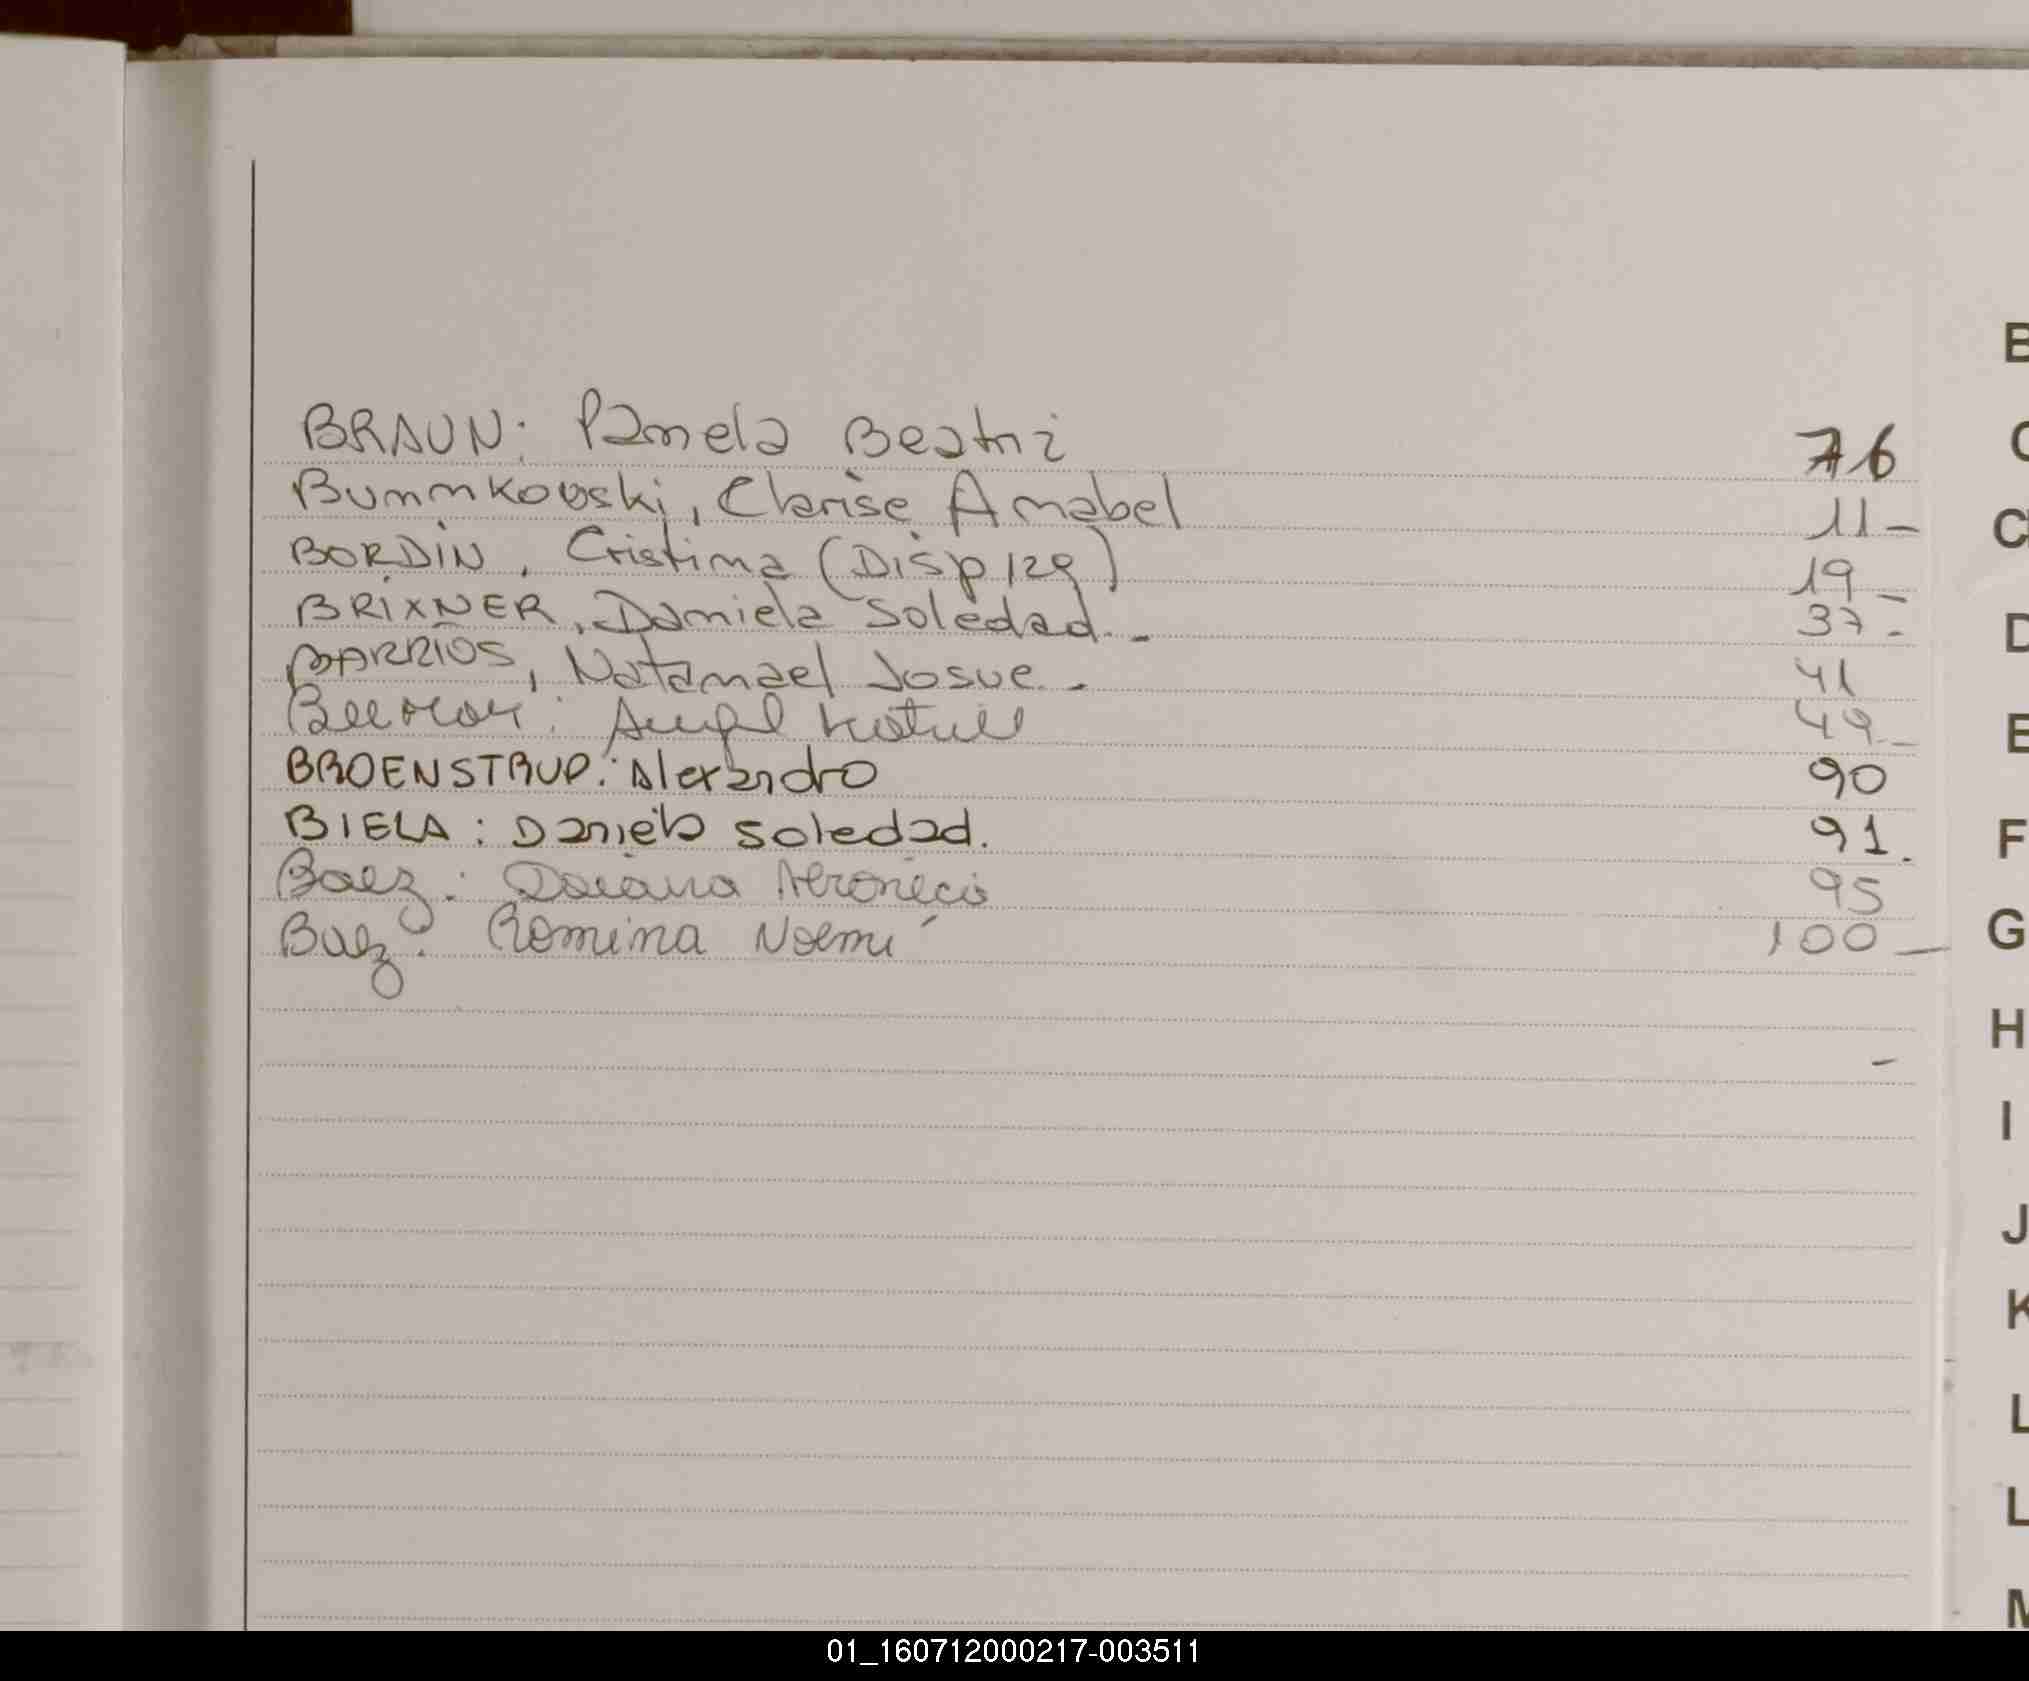 B
BRAUN: Pamela Beatriz 76
C
Bunnkowski, Clarise Anabel 11 -
CH
BORDIN, Cristina (Disp 129) 19 -
BRIXNER, Daniela Soledad. - 37 -
D
BARRIOS, Natanael Josue. - 41
49 -
E
BROENSTRUP: Alexandro 90
BIELA: Daniela Soledad. 91.
F
Baez: Daiana Veronica 95
Baez: Romina Noemí 100 -
G
H
-
I
J
K
L
L
M
01_160712000217-003511